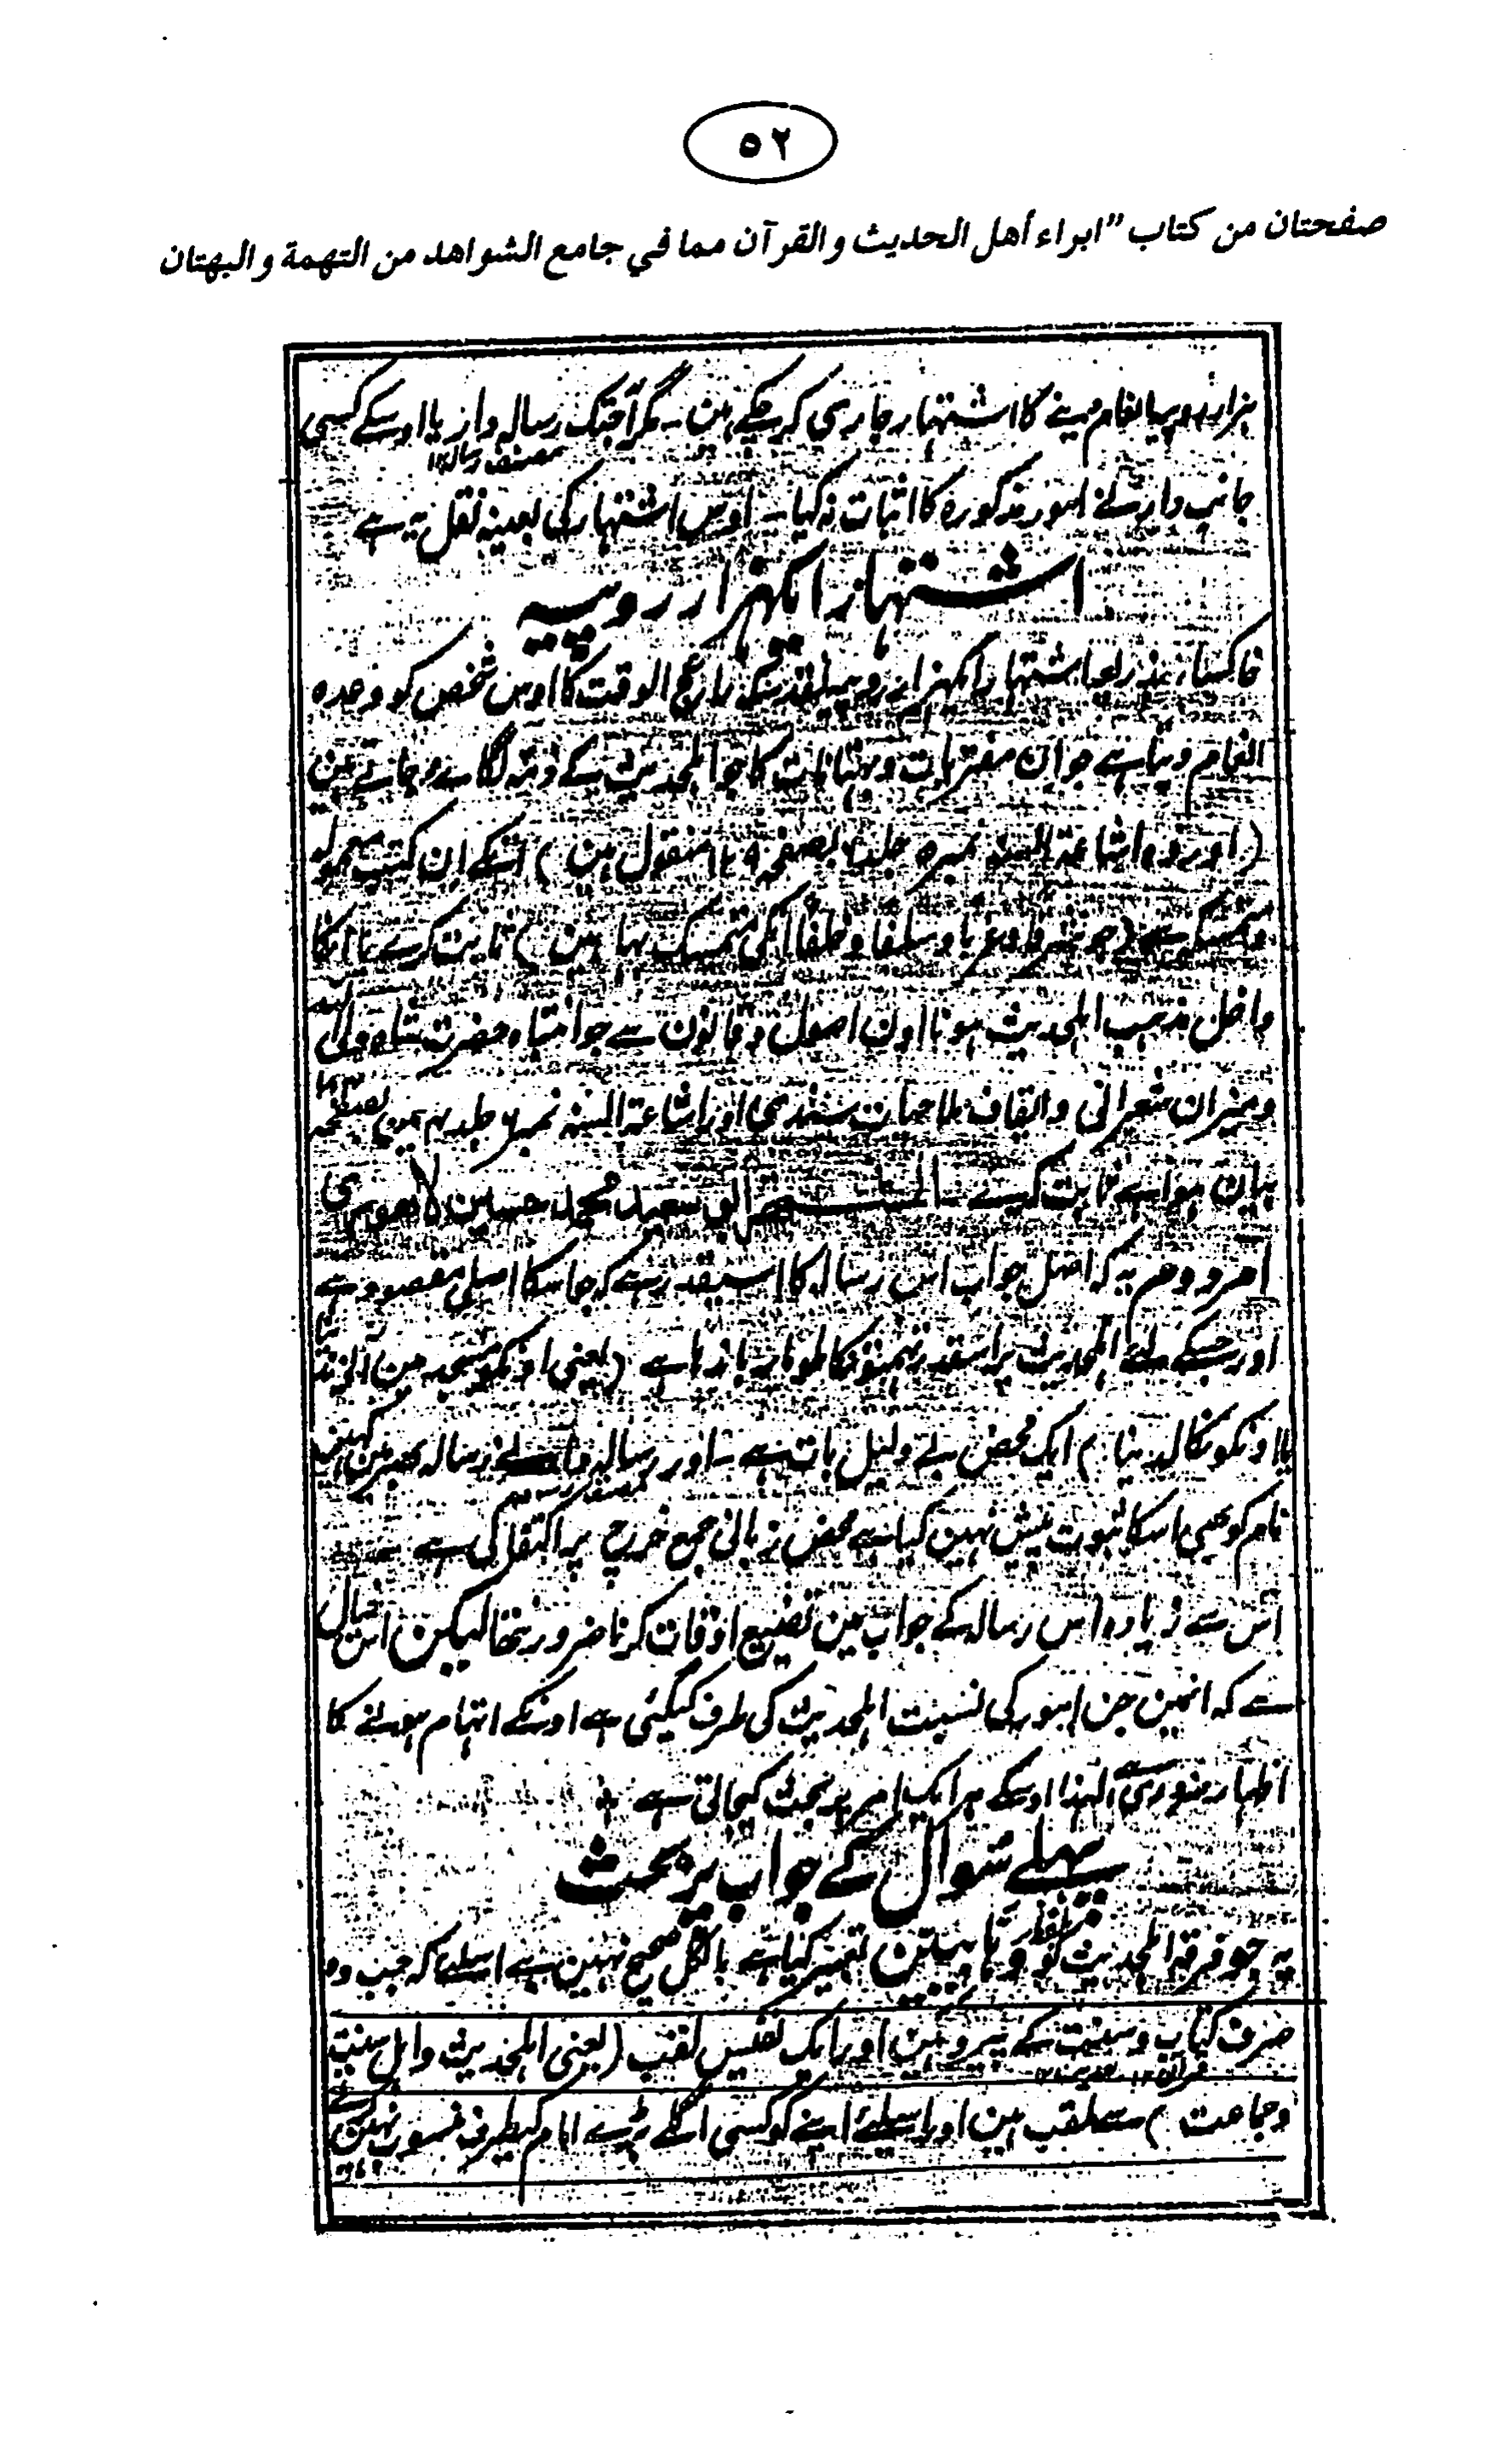 ٥٢
صفحتان من كتاب "ابراء أهل الحديث والقرآن مما في جامع الشواهد من التهمة والبهتان
ہزار روپیہ انعام دینے کا اشتہار جاری کر چکے ہین ۔ مگر آجتک رسالہ واز یا اوسکے کسی
جانب دار نے امور مذکورہ کا اثبات نہ کیا ۔ اوس اشتہار کی بعینہ نقل یہ ہے
اشتہار ایکہزار روپیہ
خاکسار بذریعہ اشتہار ایکہزار روپیہ نقد سکہ رائج الوقت کا اوس شخص کو وعدہ
انعام دیتا ہے جو ان مفتریات و بہتانات کا جو اہلحدیث کے ذمہ لگائے جاتے ہین
(اور وہ اشاعۃ السنہ نمبر جلد بصفحہ منقول ہین) انکے ان کتب
(جو شرقا وغربا وسلفا وخلفا انکی متمسک بہا ہین) ثابت کرے یا انکا
داخل مذہب اہلحدیث ہونا اون اصول و قانون سے جو حضرت شاہ ولی
ومیزان شعرانی و سندھی اور اشاعۃ السنہ نمبر جلد بصفحہ
بیان ہوا ہے ثابت کرے ۔ ابو سعید محمد حسین لاهوری
امر دوم یہ کہ اصل جواب اس رسالہ کا اسیقدر ہے کہ جو اسکا اصلی مقصود ہے
اور جسکے لئے اہلحدیث پر اسقدر تہمتونکا طومار باندھا ہے (یعنی اونکو مسجد مین
یا اونکو نکالدینا) ایک محض بے دلیل بات ہے ۔ اور رسالہ نے رسالہ بھر مین کہین
نام کو بھی اسکا ثبوت پیش نہین کیا ہے محض زبانی جمع خرچ پر اکتفا کی ہے
اس سے زیادہ اس رسالہ کے جواب مین تضییع اوقات کرنا ضرور نتھا لیکن اس خیال
سے کہ انمین جن امور کی نسبت اہلحدیث کی طرف کیگئی ہے اونکے اتہام ہونے کا
اظہار ضروری ہے لہذا اوسکے ہر ایک امر پر بحث کیجاتی ہے
پہلے سوال کے جواب پر بحث
یہ جو فرقہ اہلحدیث کو وہابیین تعبیر کیا ہے بالکل صحیح نہین ہے اسلئے کہ جب وہ
صرف کتاب و سنت کے پیرو ہین اور ایک نفیس لقب (یعنی اہلحدیث و اہل سنت
وجماعت) سے ملقب ہین اور اسلئے اپنے کو کسی اگلے بڑے امام کیطرف منسوب نہین کرتے